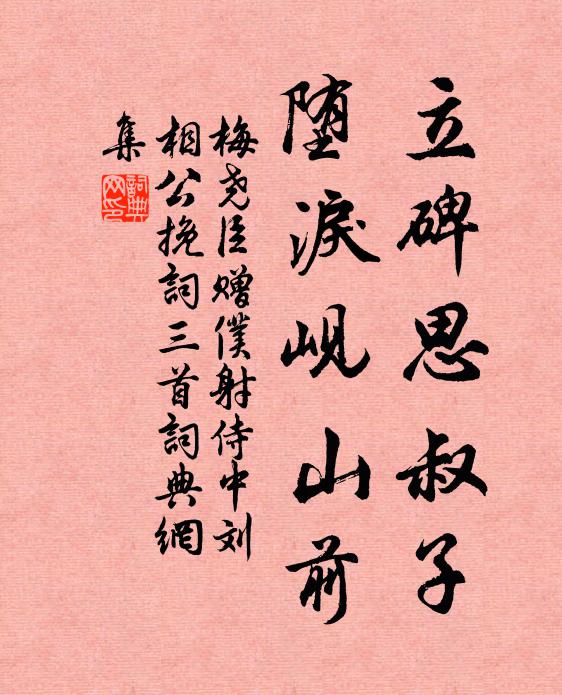 立碑思叔子
堕淚峴山前
梅尧臣赠僕射侍中刘
相公挽詞三首詞典網
集
詞典
网印